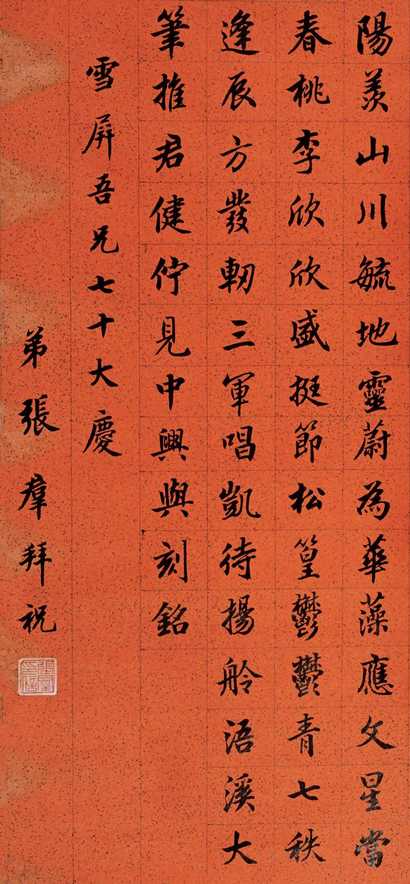 陽羨山川毓地靈蔚為華藻應文星當
春桃李欣欣盛挺節松篁鬱鬱青七秩
逢辰方發軔三軍唱凱待揚舲浯溪大
筆推君健佇見中興與刻銘
雪屏吾兄七十大慶
弟張羣拜祝